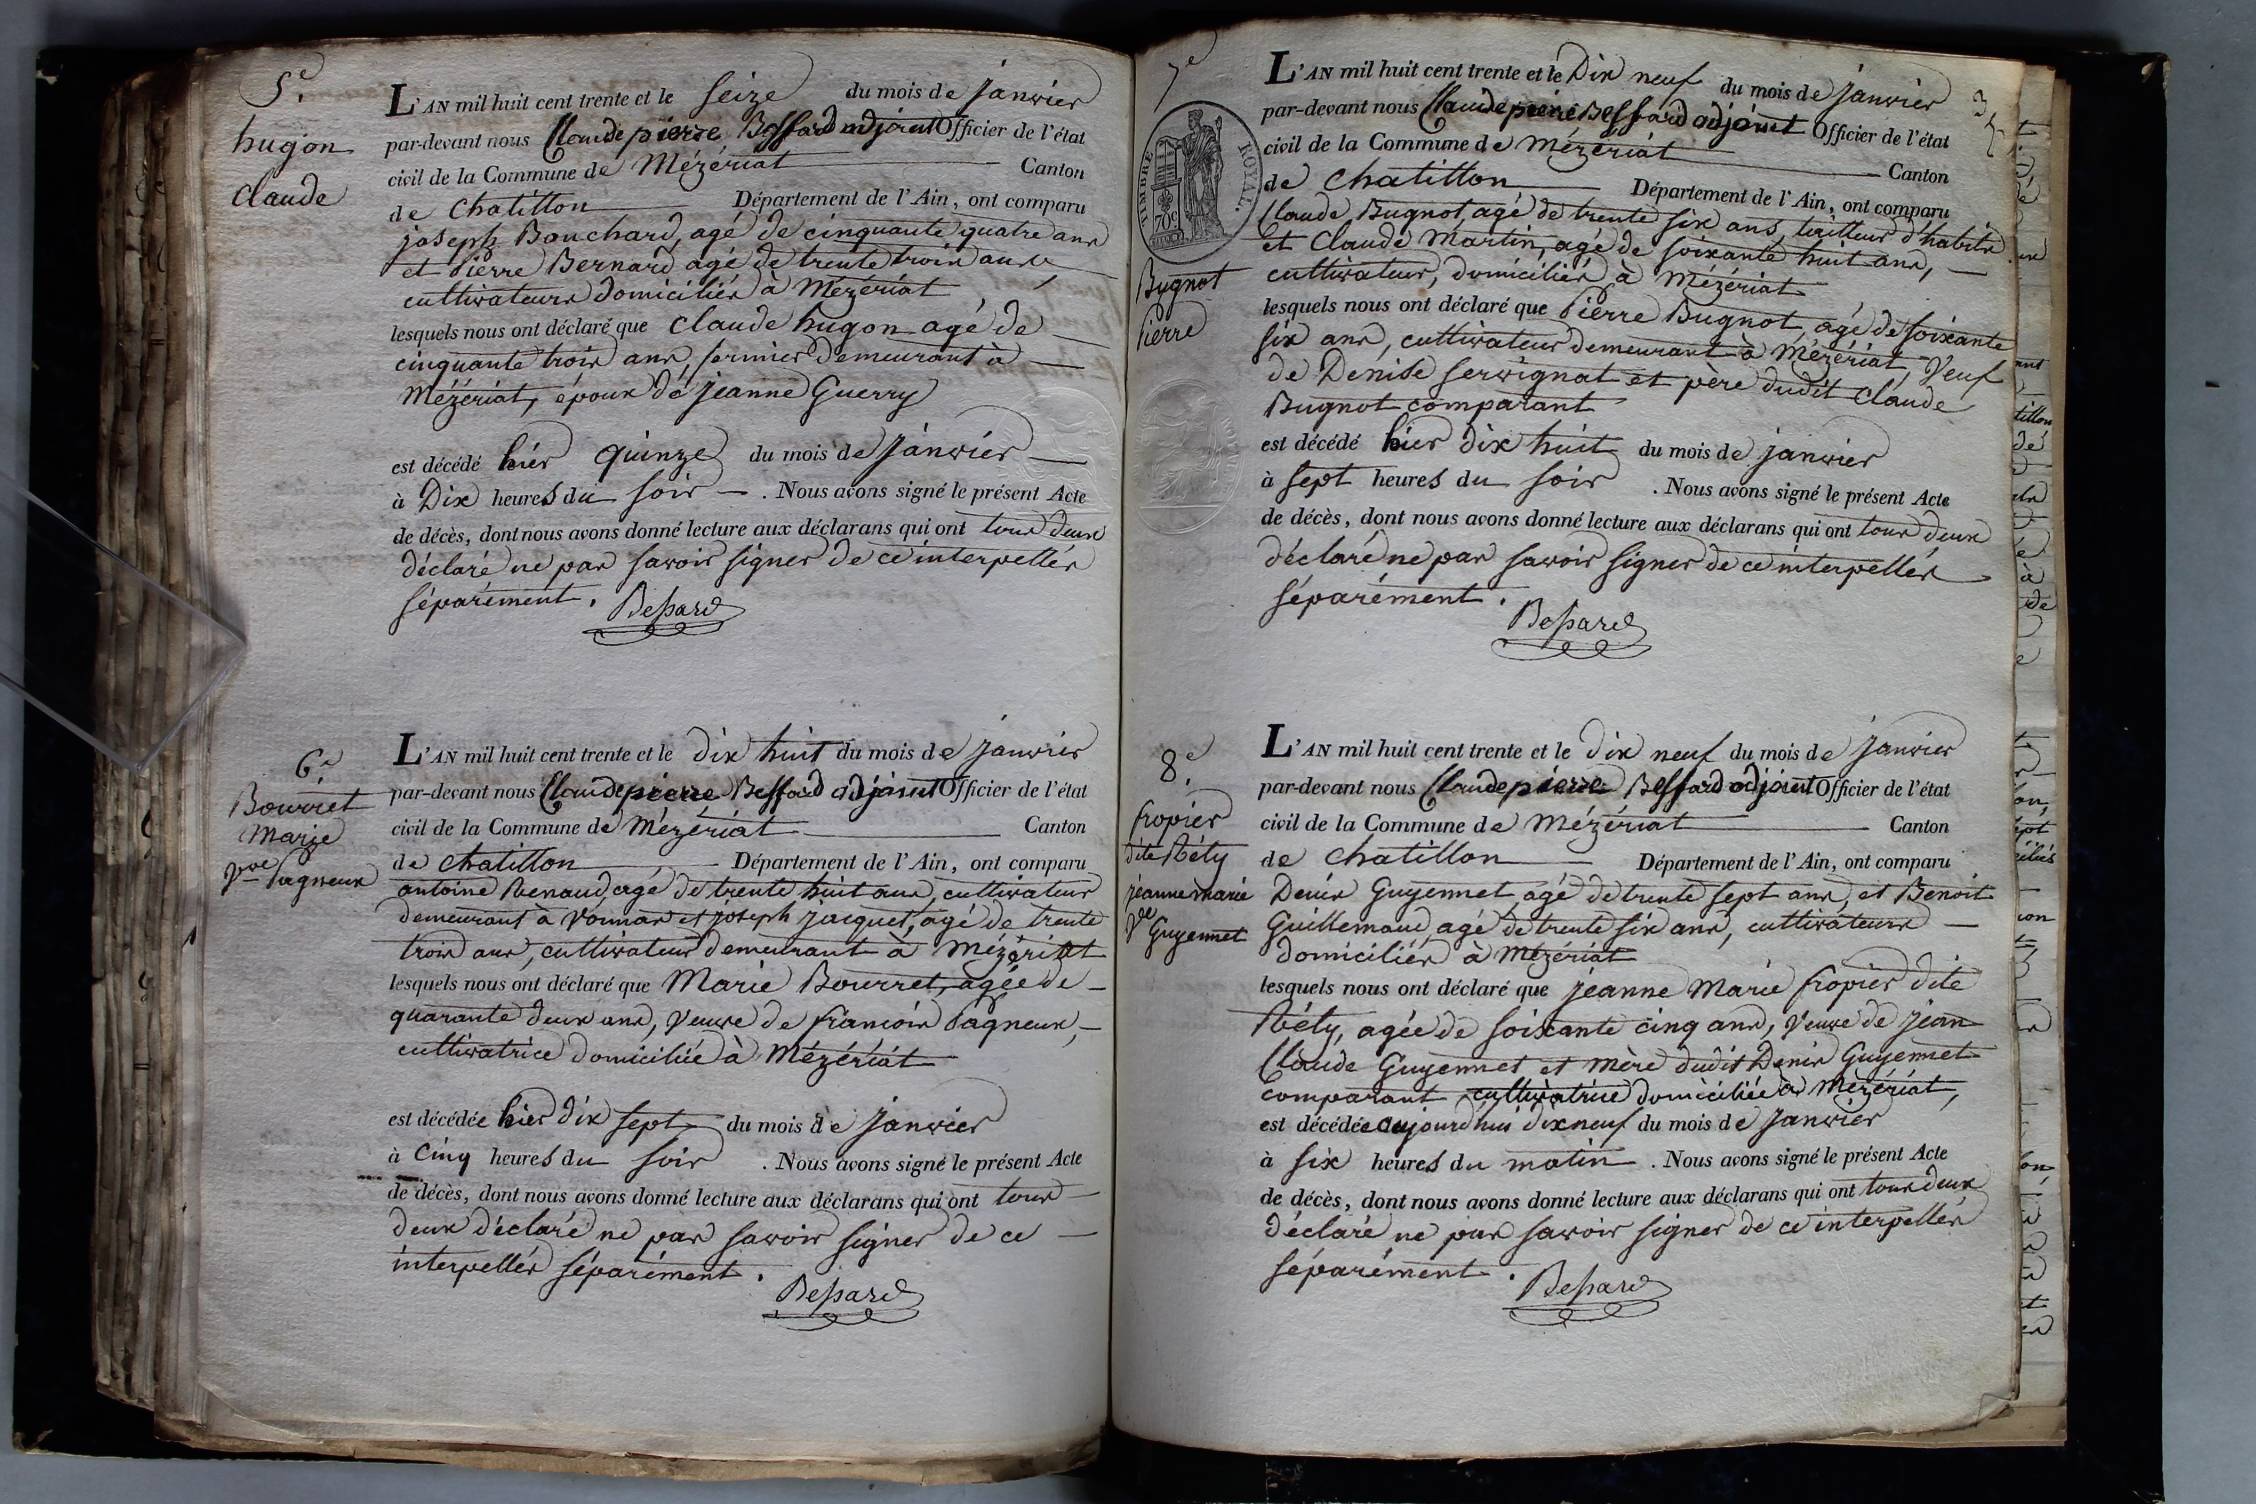 5e.
hugon
Claude
L'AN mil huit cent trente et le seize du mois de janvier
par-devant nous Claude pierre Bessard adjoint Officier de l'état
civil de la Commune de Mézériat Canton
de Chatillon Département de l'Ain, ont comparu
joseph Bouchard, agé de cinquante quatre ans
et Pierre Bernard agé de trente trois ans,
cultivateurs domiciliés à Mézériat
lesquels nous ont déclaré que Claude hugon agé de
cinquante trois ans, fermier demeurant à
Mézériat, époux de jeanne Guerry
est décédé hier quinze du mois de janvier
à Dix heures du soir. Nous avons signé le présent Acte
de décès, dont nous avons donné lecture aux déclarans qui ont tous deux
déclaré ne pas savoir signer de ce interpellés
séparément.
Bessard
6e.
Bourret
Marie
Vve Pagneux
L'AN mil huit cent trente et le dix huit du mois de janvier
par-devant nous Claude pierre Bessard adjoint Officier de l'état
civil de la Commune de Mézériat Canton
de Chatillon Département de l'Ain, ont comparu
antoine Renaud, agé de trente huit ans, cultivateur
demeurant à Vonnas et joseph jacquet, agé de trente
trois ans, cultivateur demeurant à Mézériat
lesquels nous ont déclaré que Marie Bourret, agée de
quarante deux ans, Veuve de françois Pagneux,
cultivatrice domiciliée à Mézériat
est décédée hier dix sept du mois de janvier
à Cinq heures du soir. Nous avons signé le présent Acte
de décès, dont nous avons donné lecture aux déclarans qui ont tous
deux déclaré ne pas savoir signer de ce
interpellés séparément.
Bessard
7e
3
TIMBRE ROYAL.
70c
Bugnot
Pierre
L'AN mil huit cent trente et le Dix neuf du mois de janvier
par-devant nous Claude pierre Bessard adjoint Officier de l'état
civil de la Commune de Mézériat Canton
de Chatillon Département de l'Ain, ont comparu
Claude Bugnot, agé de trente six ans, tailleur d'habits
et Claude Martin, agé de soixante huit ans,
cultivateur, domiciliés à Mézériat
lesquels nous ont déclaré que Pierre Bugnot, agé de soixante
six ans, cultivateur demeurant à Mézériat, Veuf
de Denise Servignat et père dudit Claude
Bugnot comparant
est décédé hier dix huit du mois de janvier
à sept heures du soir. Nous avons signé le présent Acte
de décès, dont nous avons donné lecture aux déclarans qui ont tous deux
déclaré ne pas savoir signer de ce interpellés
séparément.
Bessard
8e.
fropier
dite Réty
jeanne marie
Vve Guyennet
L'AN mil huit cent trente et le dix neuf du mois de janvier
par-devant nous Claude pierre Bessard adjoint Officier de l'état
civil de la Commune de Mézériat Canton
de Chatillon Département de l'Ain, ont comparu
Denis Guyennet, agé de trente sept ans, et Benoit
Guillemaud, agé de trente six ans, cultivateurs
domiciliés à Mézériat
lesquels nous ont déclaré que jeanne Marie fropier dite
Réty, agée de soixante cinq ans, Veuve de jean
Claude Guyennet et mère dudit Denis Guyennet
comparant, cultivatrice domiciliée à Mézériat,
est décédée aujourd'hui dix neuf du mois de janvier
à six heures du matin. Nous avons signé le présent Acte
de décès, dont nous avons donné lecture aux déclarans qui ont tous deux
déclaré ne pas savoir signer de ce interpellés
séparément.
Bessard